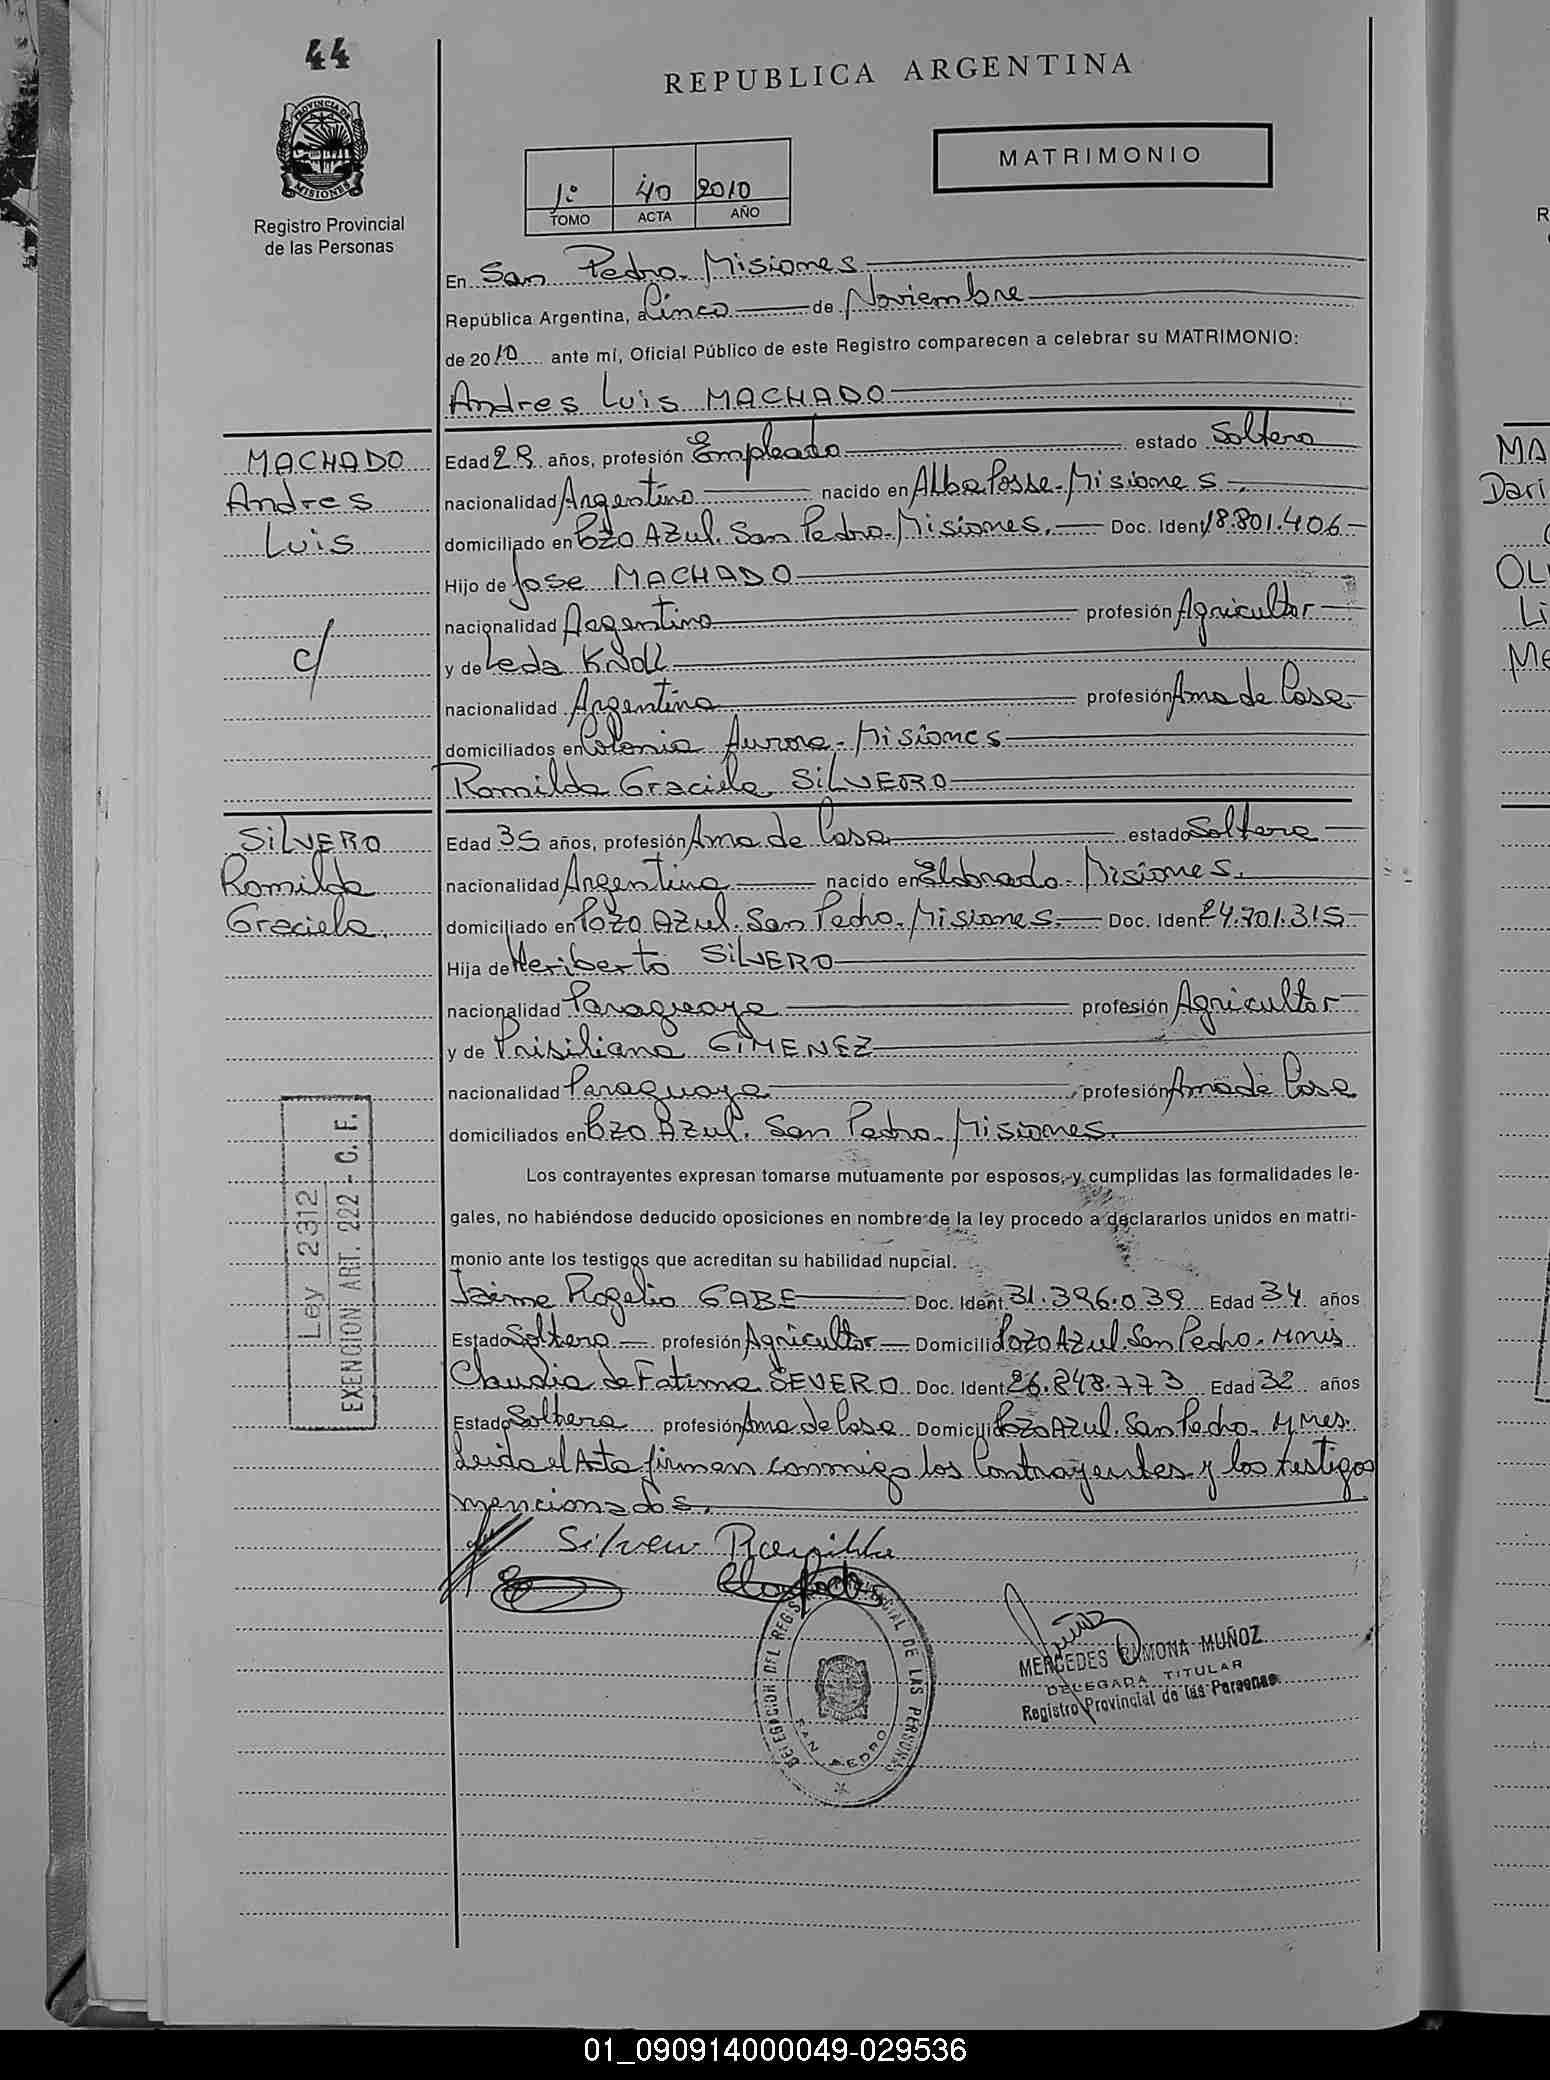 44
REPUBLICA ARGENTINA
PROVINCIA DE MISIONES
Registro Provincial
de las Personas
MATRIMONIO
1º 40 2010
TOMO ACTA AÑO
En San Pedro - Misiones
República Argentina, a Cinco de Noviembre
de 2010 ante mí, Oficial Público de este Registro comparecen a celebrar su MATRIMONIO:
Andres Luis MACHADO
MACHADO
Andres
Luis
c/
Edad 28 años, profesión Empleado estado Soltero
nacionalidad Argentino nacido en Alba Posse - Misiones.
domiciliado en Pozo Azul. San Pedro - Misiones. Doc. Ident. 18.801.406
Hijo de Jose MACHADO
nacionalidad Argentino profesión Agricultor
y de Leda KNOLL
nacionalidad Argentina profesión Ama de Casa
domiciliados en Colonia Aurora - Misiones
Romilda Graciela SILVERO
SILVERO
Romilda
Graciela.
Edad 35 años, profesión Ama de Casa estado Soltera
nacionalidad Argentina nacido en Eldorado - Misiones.
domiciliado en Pozo Azul. San Pedro - Misiones. Doc. Ident. 24.701.315
Hija de Heriberto SILVERO
nacionalidad Paraguaya profesión Agricultor
y de Prisiliana GIMENEZ
nacionalidad Paraguaya profesión Ama de Casa
domiciliados en Pozo Azul. San Pedro - Misiones.
Los contrayentes expresan tomarse mutuamente por esposos, y cumplidas las formalidades le-
gales, no habiéndose deducido oposiciones en nombre de la ley procedo a declararlos unidos en matri-
monio ante los testigos que acreditan su habilidad nupcial.
Ley 2312
EXENCION ART. 222 - C. F.
Jaime Rogelio GABE Doc. Ident. 31.396.039 Edad 34 años
Estado Soltero profesión Agricultor Domicilio Pozo Azul. San Pedro - Mnis
Claudia de Fatima SEVERO Doc. Ident. 26.848.773 Edad 32 años
Estado Soltera profesión Ama de Casa Domicilio Pozo Azul. San Pedro - Mnes.
Leida el Acta firman conmigo los Contrayentes y los testigos
mencionados.
DELEGACION DEL REGISTRO PROVINCIAL DE LAS PERSONAS
SAN PEDRO
MERCEDES RAMONA MUÑOZ
DELEGADA TITULAR
Registro Provincial de las Personas
MA
Dari
OLI
Li
Me
01_090914000049-029536